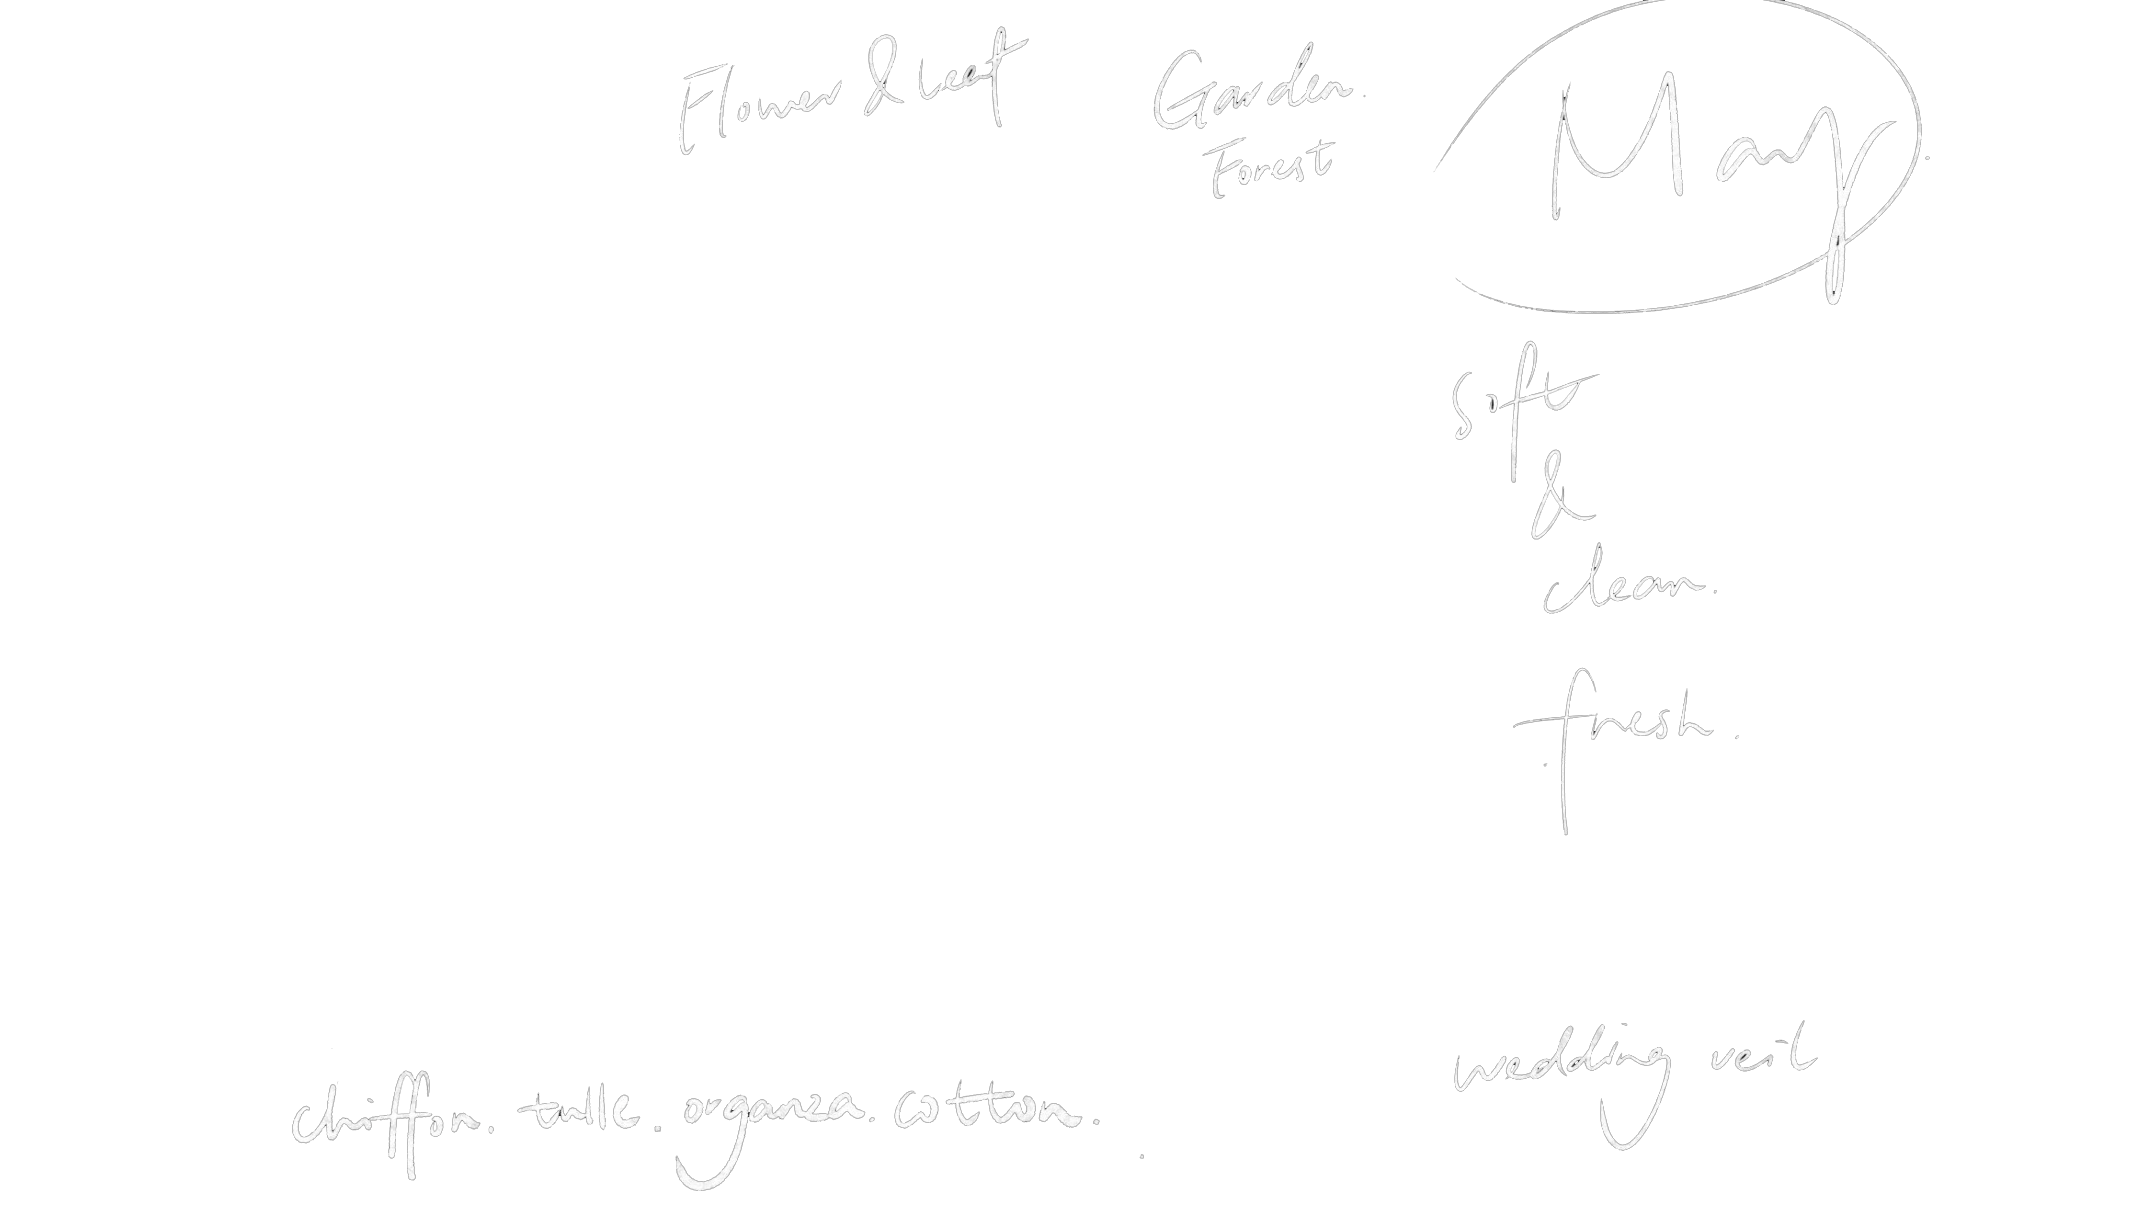 Flower & Leaf
Garden.
Forest
May
soft
&
clean.
fresh.
wedding veil
chiffon. tulle. organza. cotton.